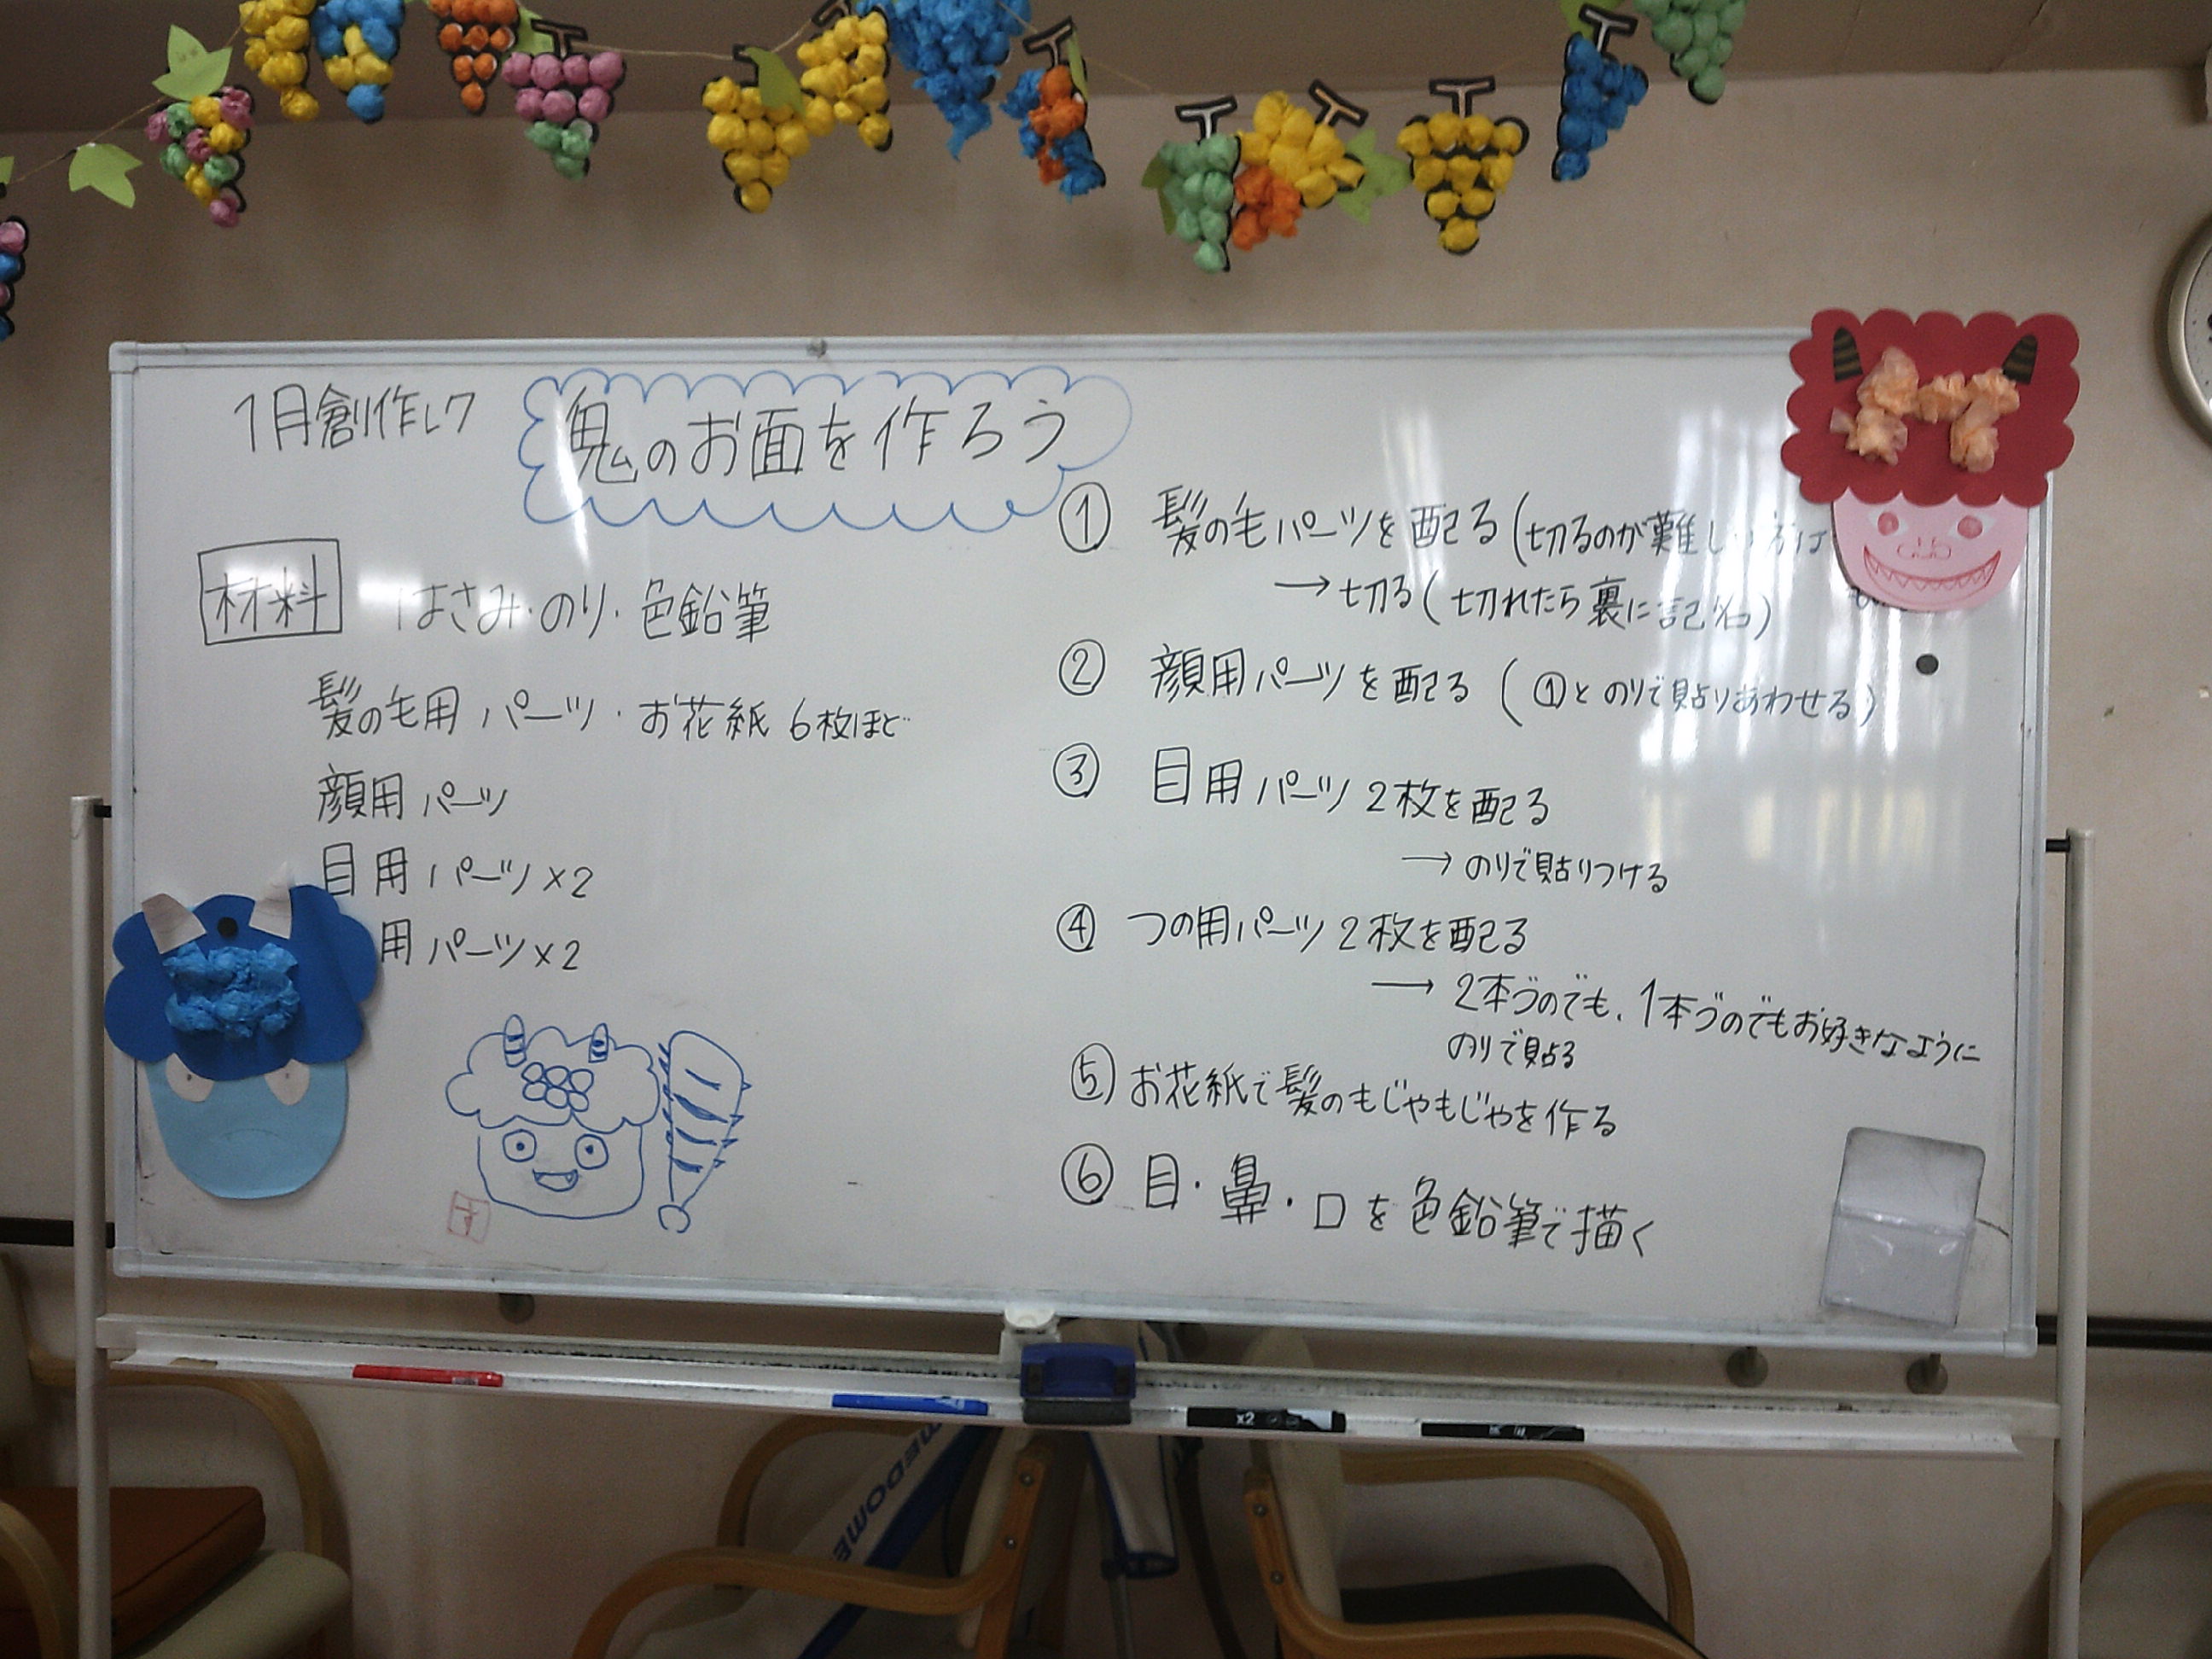 1月創作レク
鬼のお面を作ろう
材料 はさみ・のり・色鉛筆
髪の毛用パーツ・お花紙6枚ほど
顔用パーツ
目用パーツ×2
用パーツ×2
① 髪の毛パーツを配る(切るのが難しい方は
→切る(切れたら裏に記名)
② 顔用パーツを配る(①とのりで貼りあわせる)
③ 目用パーツ2枚を配る
→のりで貼りつける
④ つの用パーツ2枚を配る
→2本づのでも、1本づのでもお好きなように
のりで貼る
⑤ お花紙で髪のもじゃもじゃを作る
⑥ 目・鼻・口を色鉛筆で描く
x2
MEDOME